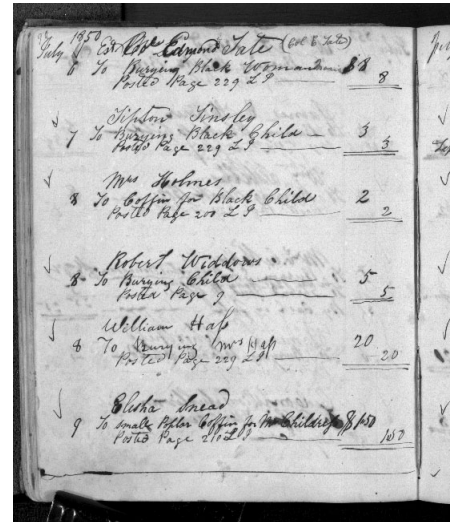 July 1850 Est Col Edmond Tate (Col E Tate)
6 To Burying Black Woman $8
Posted Page 229 L J 8
Tipton Tinsley
7 To Burying Black Child 3
Posted Page 229 L J 3
Mrs Holmes
8 To Coffin for Black Child 2
Posted Page 200 L J 2
Robert Widdows
8 To Burying Child 5
Posted Page 9 5
William Haß
8 To Burying Mrs Haß 20
Posted Page 229 L J 20
Elisha Snead
9 To small Poplar Coffin for $1.50
Posted Page 210 L J 1.50